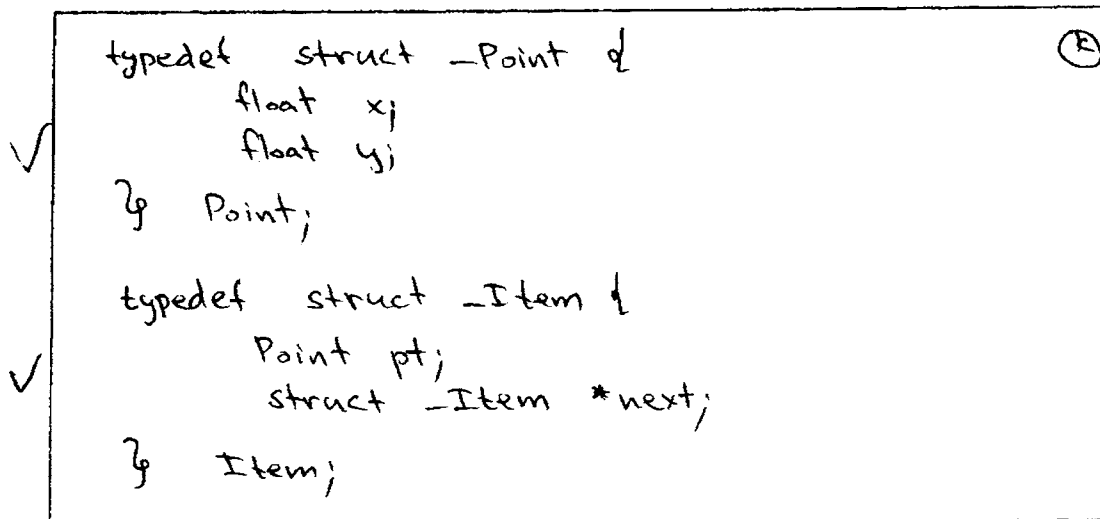 typedef struct _Point {
float x;
float y;
} Point;
typedef struct _Item {
Point pt;
struct _Item *next;
} Item;